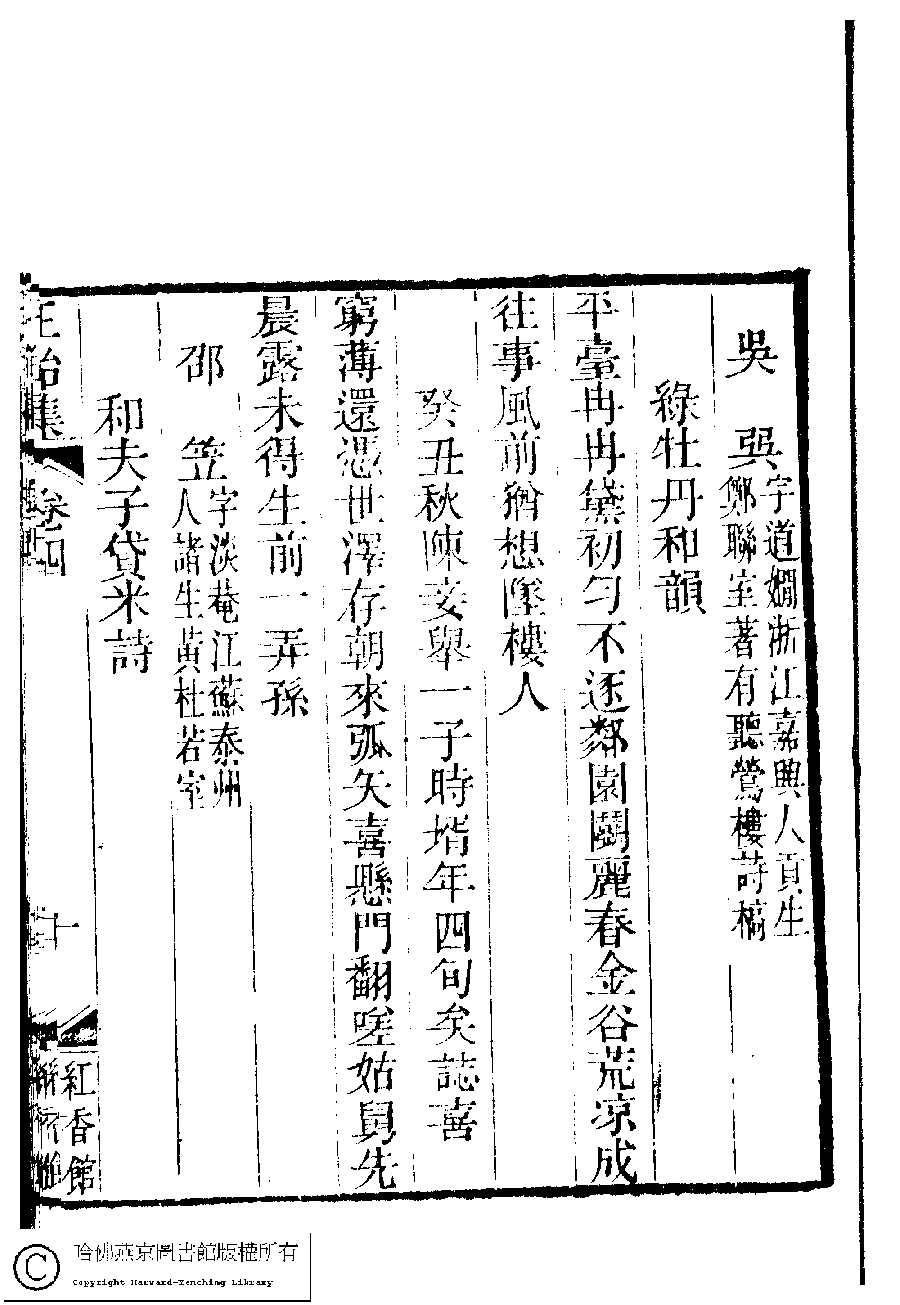 吳　巽
字道嫺浙江嘉興人貢生
鄭聯室著有聽鶯樓詩槁
綠牡丹和韻
平臺冉冉黛初勻不逐鄰園鬭麗春金谷荒凉成
往事風前猶想墜樓人
癸丑秋陳妾舉一子時壻年四旬矣誌喜
窮薄還憑世澤存朝來弧矢喜懸門翻嗟姑舅先
晨露未得生前一弄孫
邵　笠
字淡菴江蘇泰州
人諸生黃杜若室
和夫子貸米詩
正始集
卷四
十
紅香館
哈佛燕京圖書館版權所有
Copyright Harvard-Yenching Library